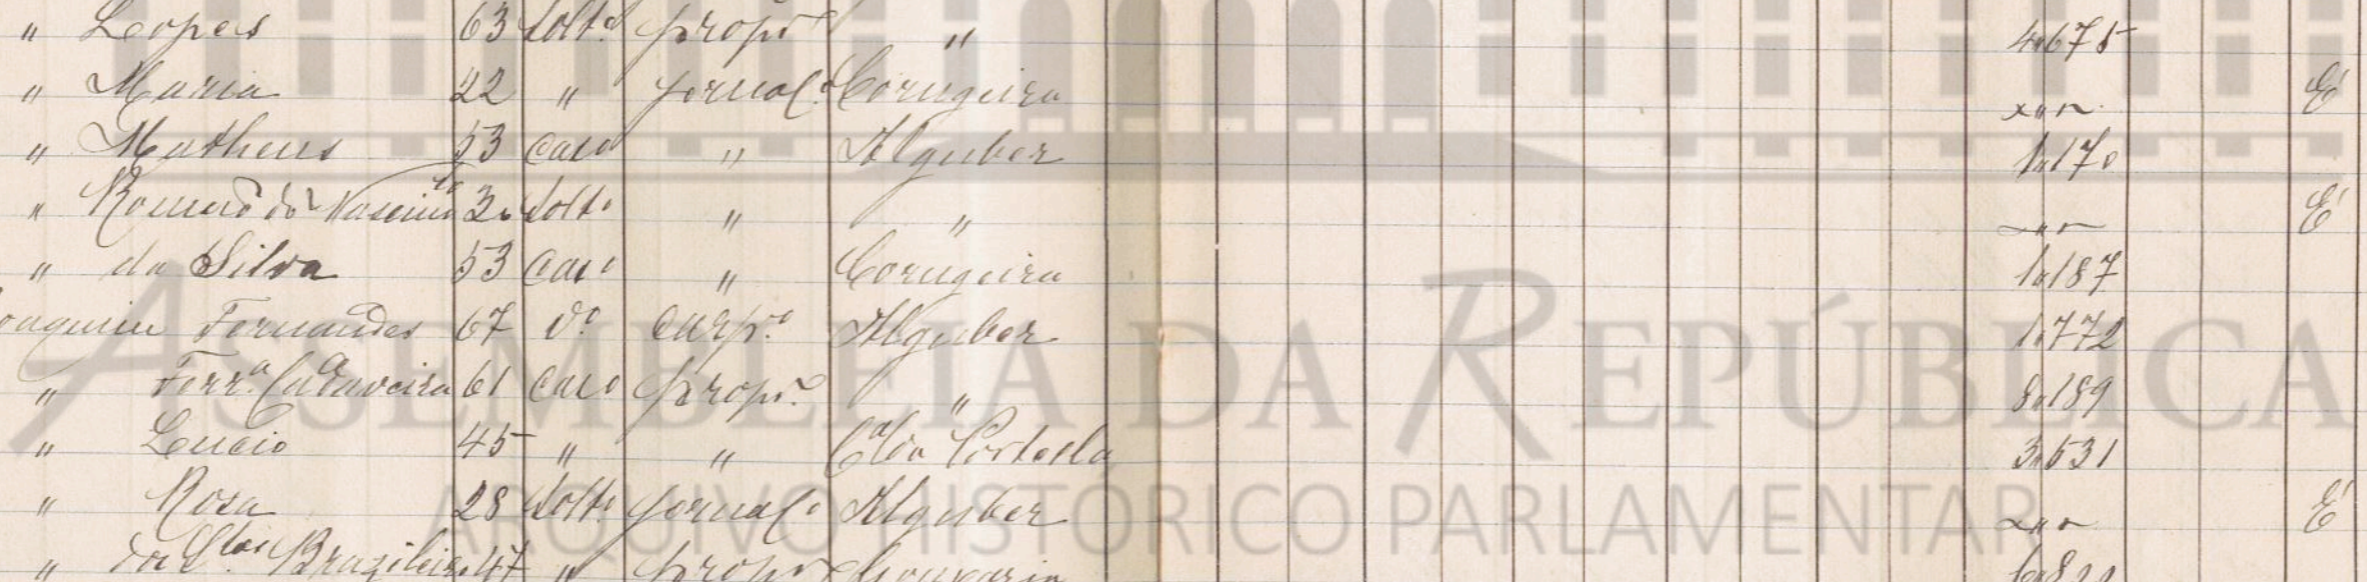 " Lopes 63 solto propro " 4"675
" Maria 22 " jornalo Corugeira "  E
" Matheus 53 caso " Alguber 1"170
" Romão do Nascimto 3 solto " " " E
" da Silva 53 caso " Corugeira 1"187
oaquim Fernandes 67 vo carpo Alguber 1"772
" Ferra Calaveira 61 caso propro " 8"189
" Lucio 45 " " 3"531
" Rosa 28 solto jornalo Alguber " E
" Brazileiro 47 " propro
ASSEMBLEIA DA REPÚBLICA
ARQUIVO HISTÓRICO PARLAMENTAR